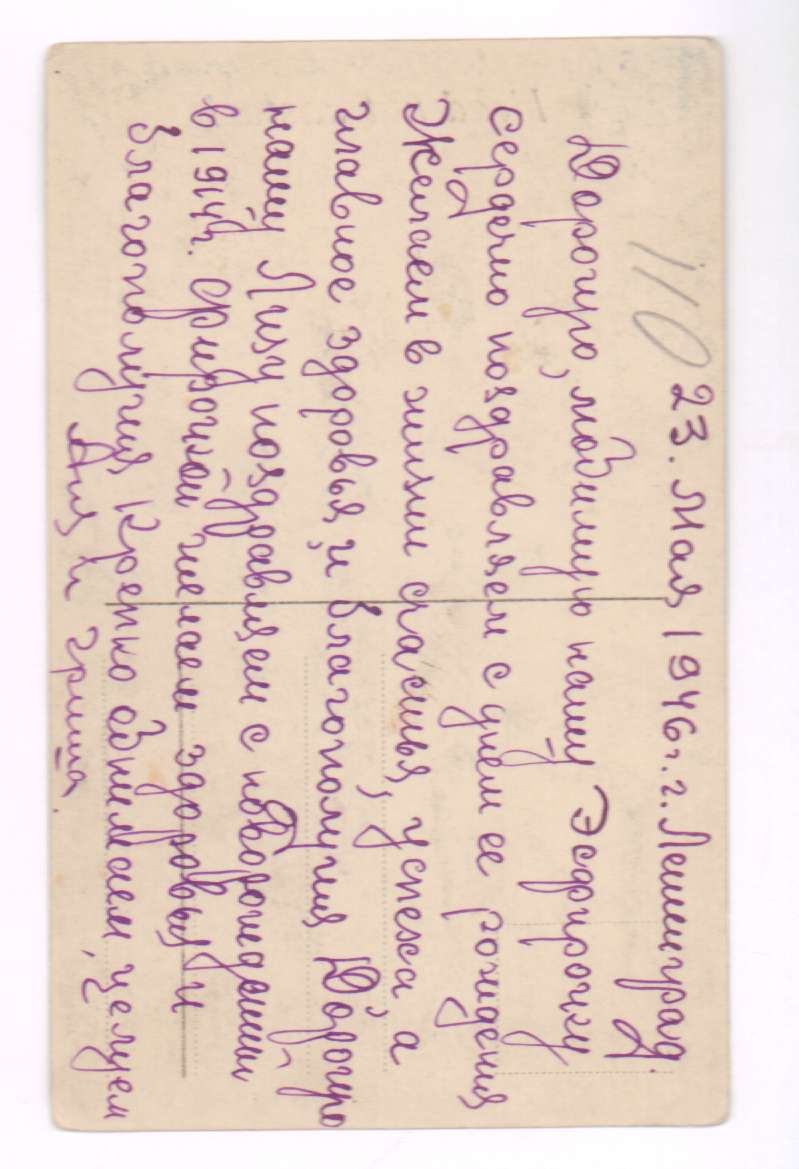 110
23. Мая 1946 г. г. Ленинград.
Дорогую, любимую нашу Эсфирочку
сердечно поздравляем с днем ее рождения
Желаем в жизни счастья, успеха, а
главное здоровья, и благополучия, Дорогую
нашу Лизу поздравляем с новорожденной
в 1914 г. Фирочкой желаем здоровья и
благополучия, крепко обнимаем, целуем
Аня и Гриша.